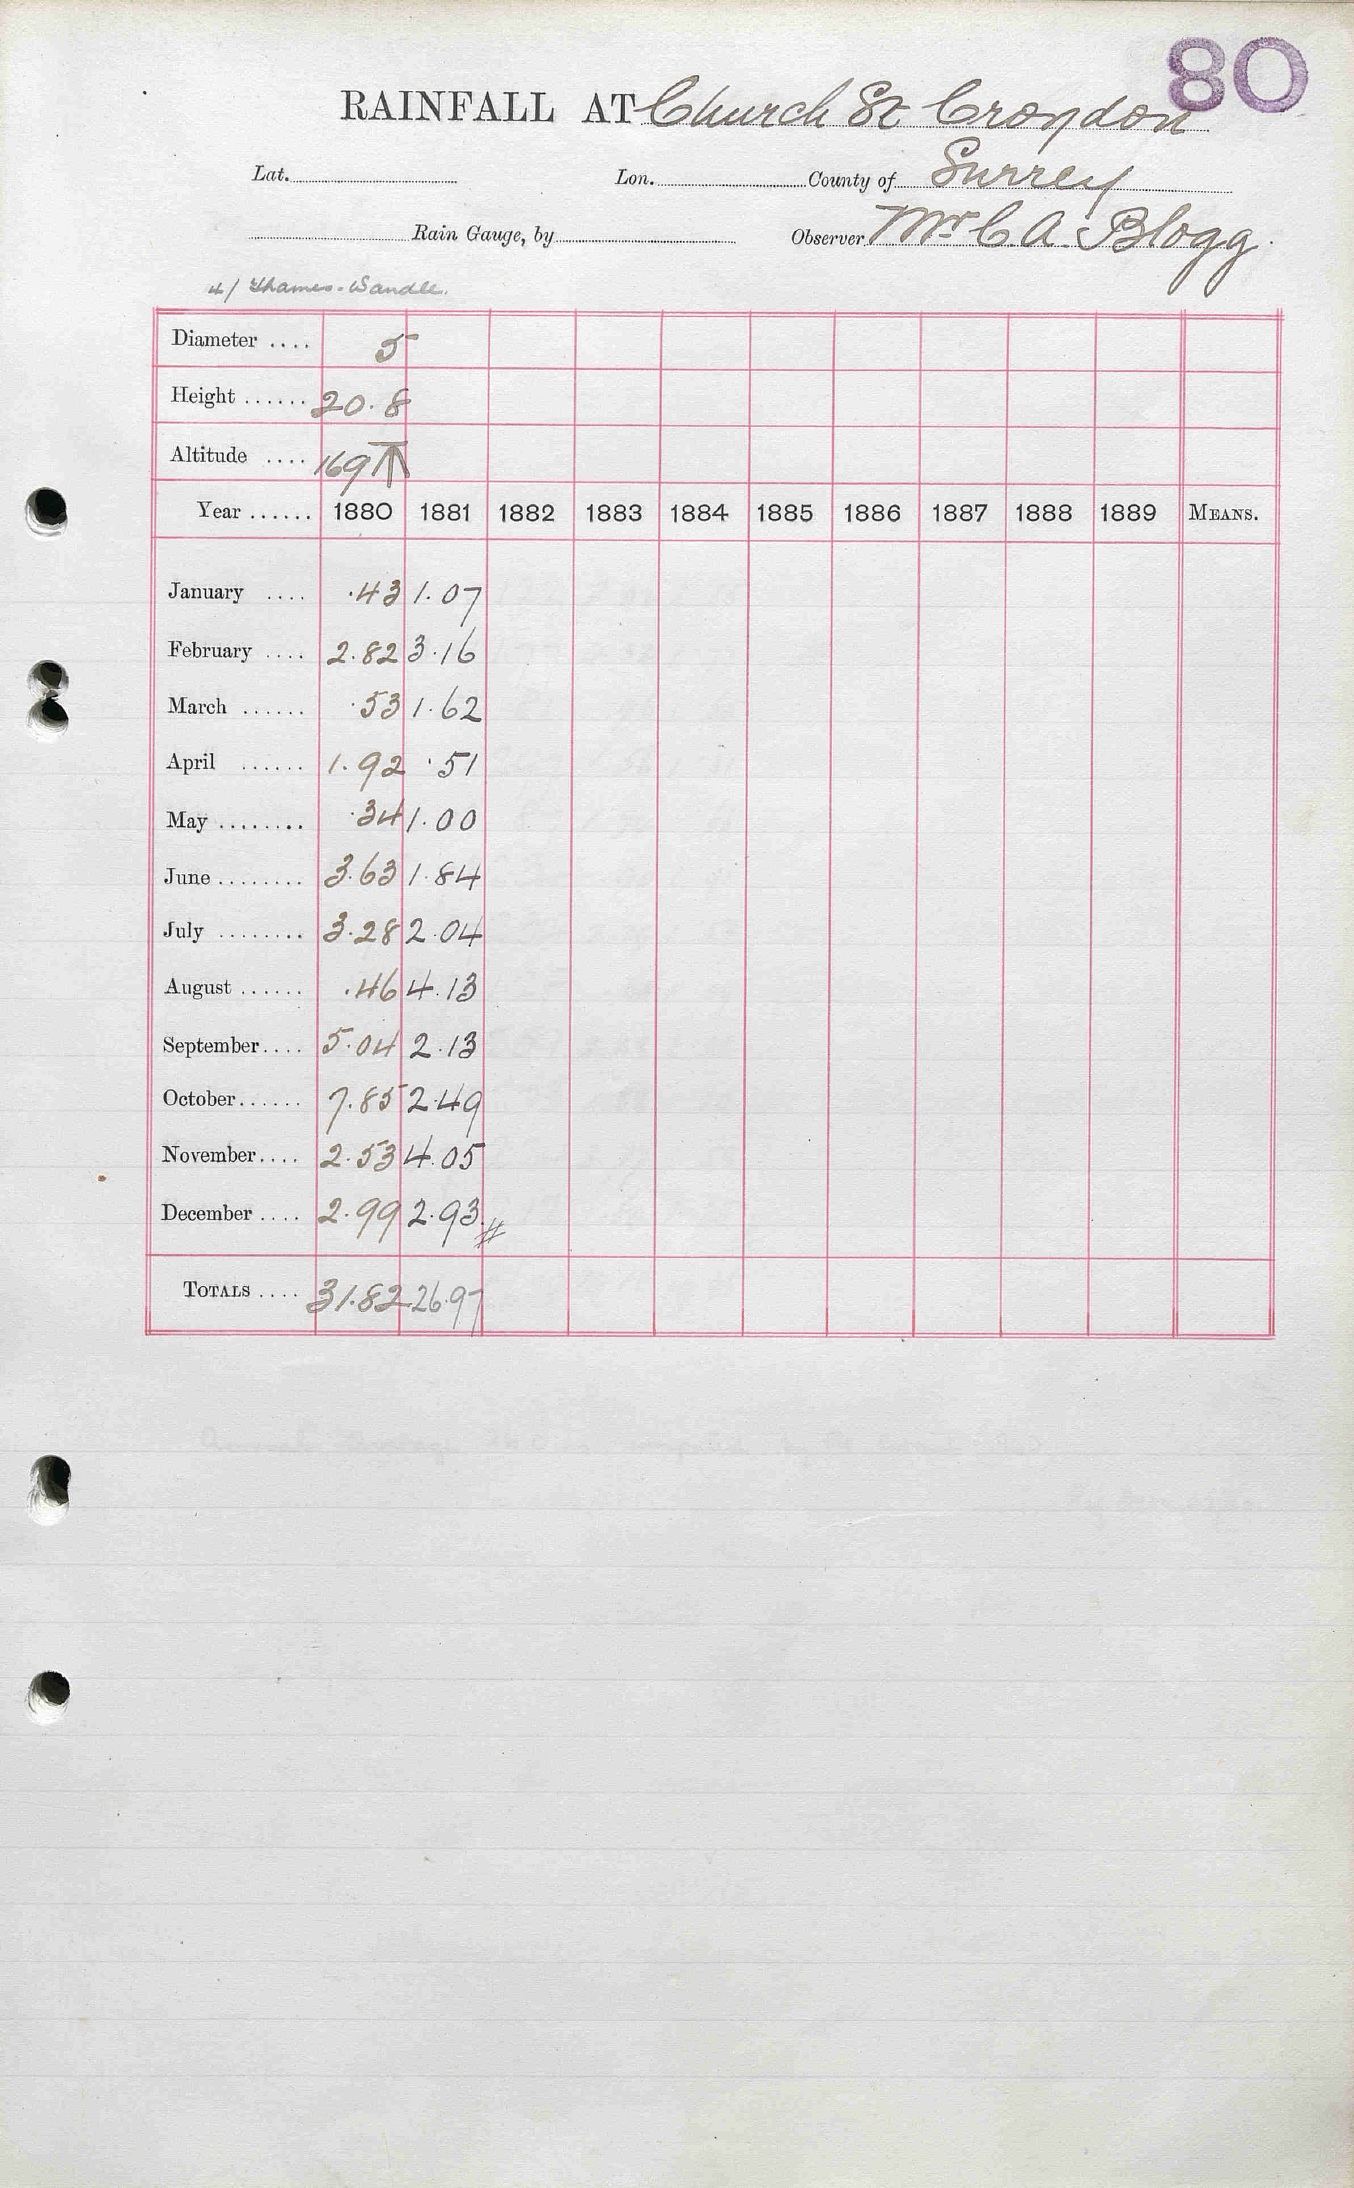 80
RAINFALL AT Church St Croydon
Lat. Lon. County of Surrey
Rain Gauge, by Observer Mr C A. Blogg.
4/ Thames-Wandle.
Diameter .... 5
Height ...... 20.8
Altitude .... 169
Year ...... 1880 1881 1882 1883 1884 1885 1886 1887 1888 1889 MEANS.
January .... .43 1.07
February .... 2.82 3.16
March ...... .53 1.62
April ...... 1.92 .51
May ........ .34 1.00
June ........ 3.63 1.84
July ........ 3.28 2.04
August ...... .46 4.13
September .... 5.04 2.13
October ...... 7.85 2.49
November .... 2.53 4.05
December .... 2.99 2.93
TOTALS .... 31.82 26.97